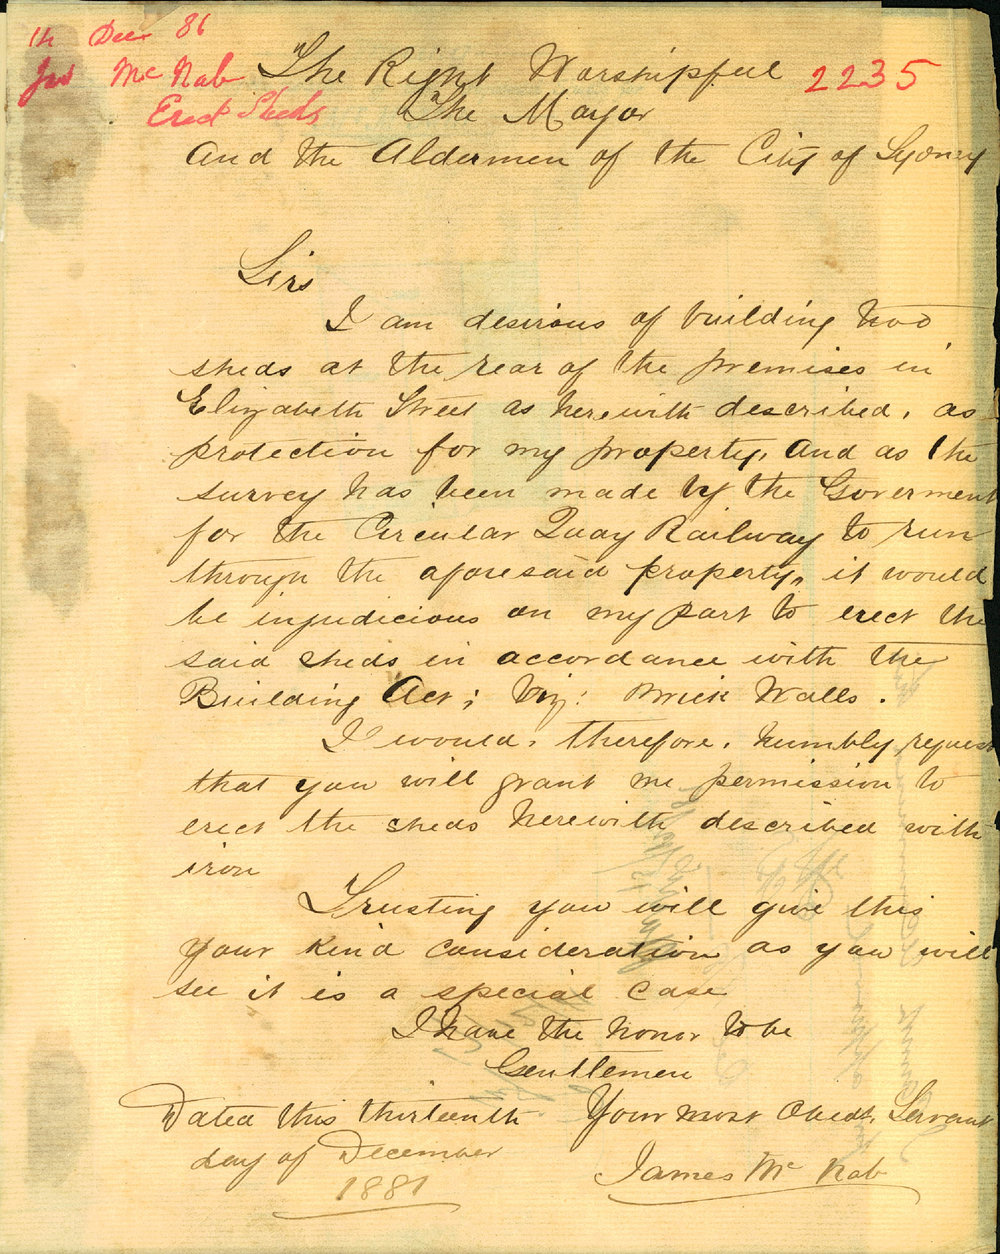 14 Decr 86
Jas McNab
Erect Sheds
2235
The Right Worshipful
The Mayor
And the Aldermen of the City of Sydney
Sirs
I am desirous of building two
sheds at the rear of the premises in
Elizabeth Street as herewith described, as
protection for my property, And as the
survey has been made by the Goverment
for the Circular Quay Railway to run
through the aforesaid property, it would
be injudicious on my part to erect the
said sheds in accordance with the
Building Act; Viz: Brick Walls.
I would, therefore, humbly request
that you will grant me permission to
erect the sheds herewith described with
iron
Trusting you will give this
your kind consideration as you will
see it is a special case
I have the honor to be
Gentlemen
Your most Obedt. Servant
James McNab
Dated this thirteenth
day of December
1881